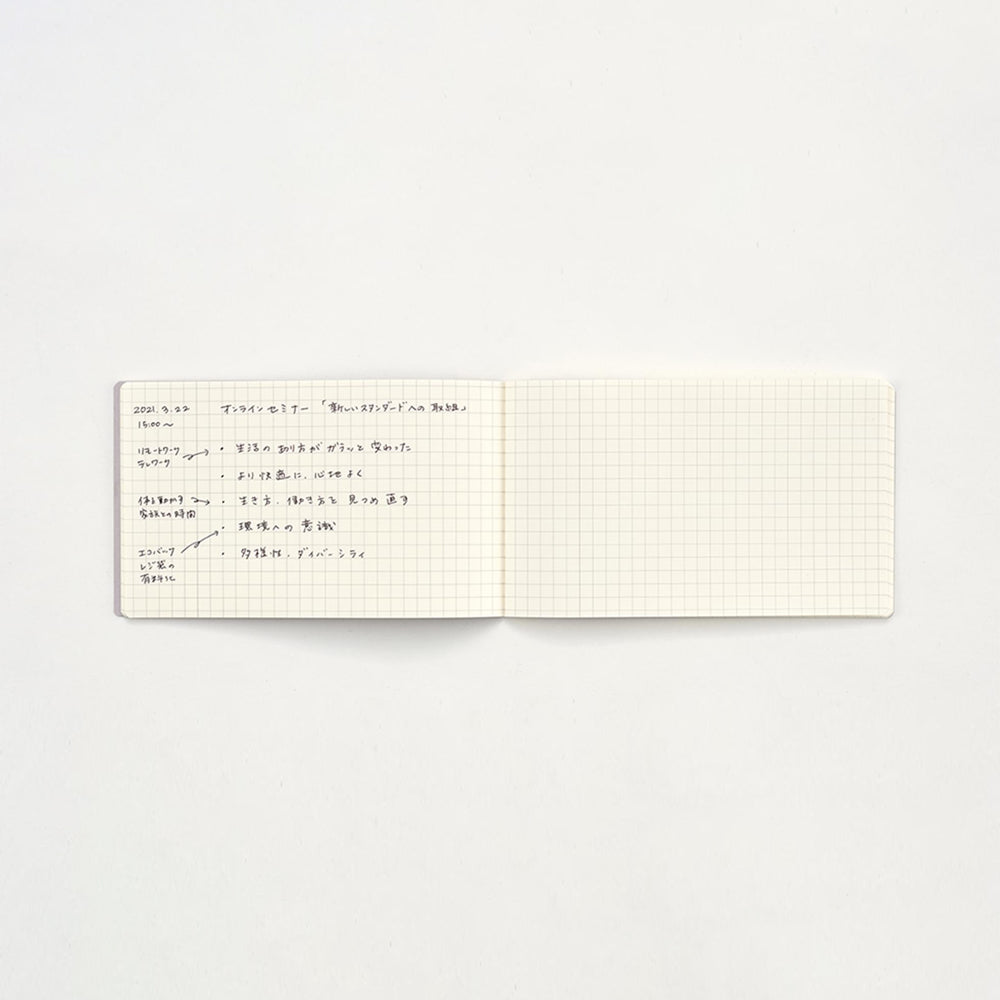 2021.3.22 オンラインセミナー 「新しいスタンダードへの取組」
15:00〜
リモートワーク
テレワーク
・生活の 方がガラッと変わった
・より快適に、心地よく
体を動かす
家族との時間
・生き方、働き方を見つめ直す
・環境への意識
エコバック
レジ袋の
有料化
・多様性、ダイバーシティ